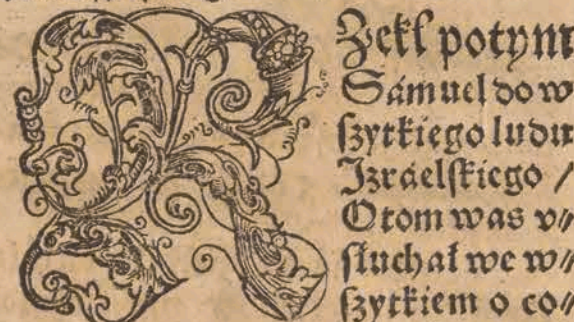 RZekł potym
Sámuel do w
ſzytkiego ludu
Izráelſkiego /
Otom was v⸗
ſłuchał we w⸗
ſzytkiem o co⸗